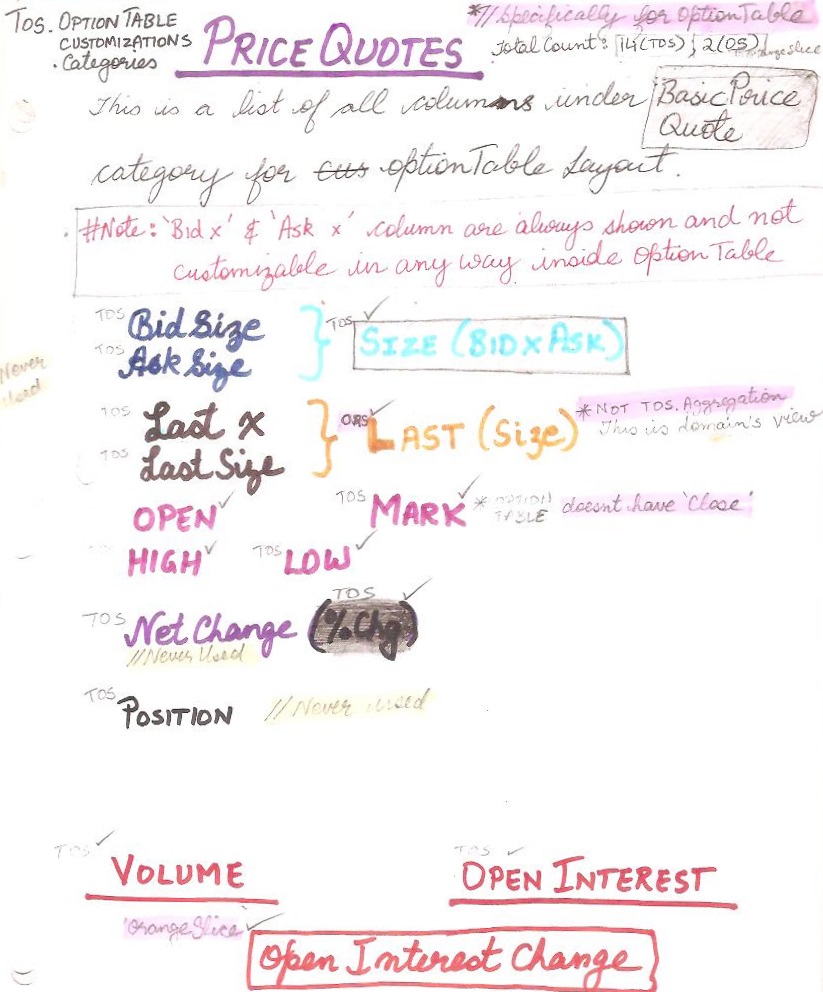 TOS. OPTION TABLE
CUSTOMIZATIONS
. Categories
PRICE QUOTES
*// Specifically for OptionTable
Total Count: 14(TOS) ; 2(OS)
OrangeSlice
This is a list of all columns under Basic Price
Quote
category for cus optionTable Layout.
#Note: 'Bid x' & 'Ask x' column are always shown and not
customizable in any way inside OptionTable
TOS Bid Size
TOS Ask Size
TOS ✓ SIZE (BID x ASK)
Never
Used
TOS Last X
TOS Last Size
✓ LAST (Size)
* NOT TOS. Aggregation
This is domain's view
OPEN ✓
TOS MARK ✓
* OPTION
TABLE doesnt have 'Close'
HIGH ✓
TOS LOW ✓
TOS Net Change
TOS (% Chg) ✓
// Never Used
TOS POSITION // Never used
TOS ✓ VOLUME
TOS ✓ OPEN INTEREST
'OrangeSlice' ✓
Open Interest Change